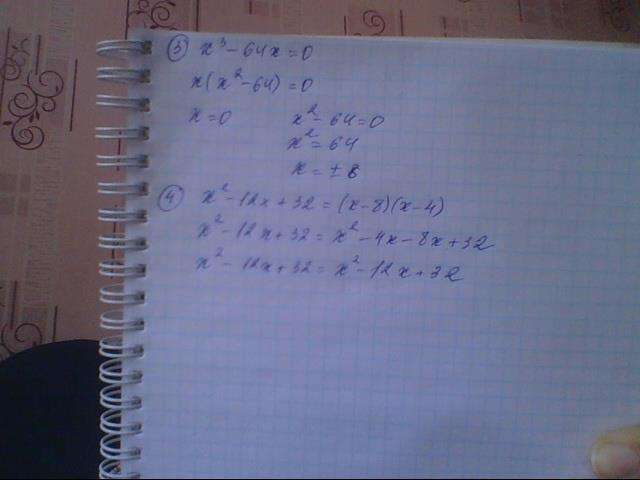 ③ x³ - 64x = 0
x(x² - 64) = 0
x = 0 x² - 64 = 0
x² = 64
x = ±8
④ x² - 12x + 32 = (x - 8)(x - 4)
x² - 12x + 32 = x² - 4x - 8x + 32
x² - 12x + 32 = x² - 12x + 32